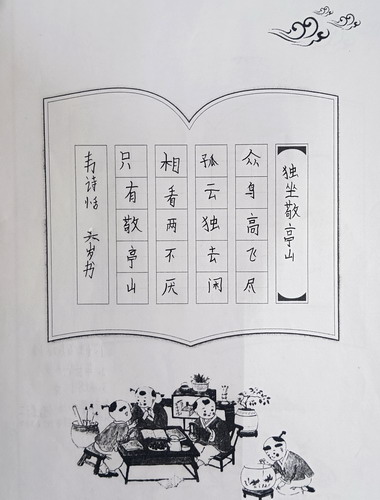 独坐敬亭山
众身高飞尽
孤云独去闲
相看两不厌
只有敬亭山
韦诗恬 岁书